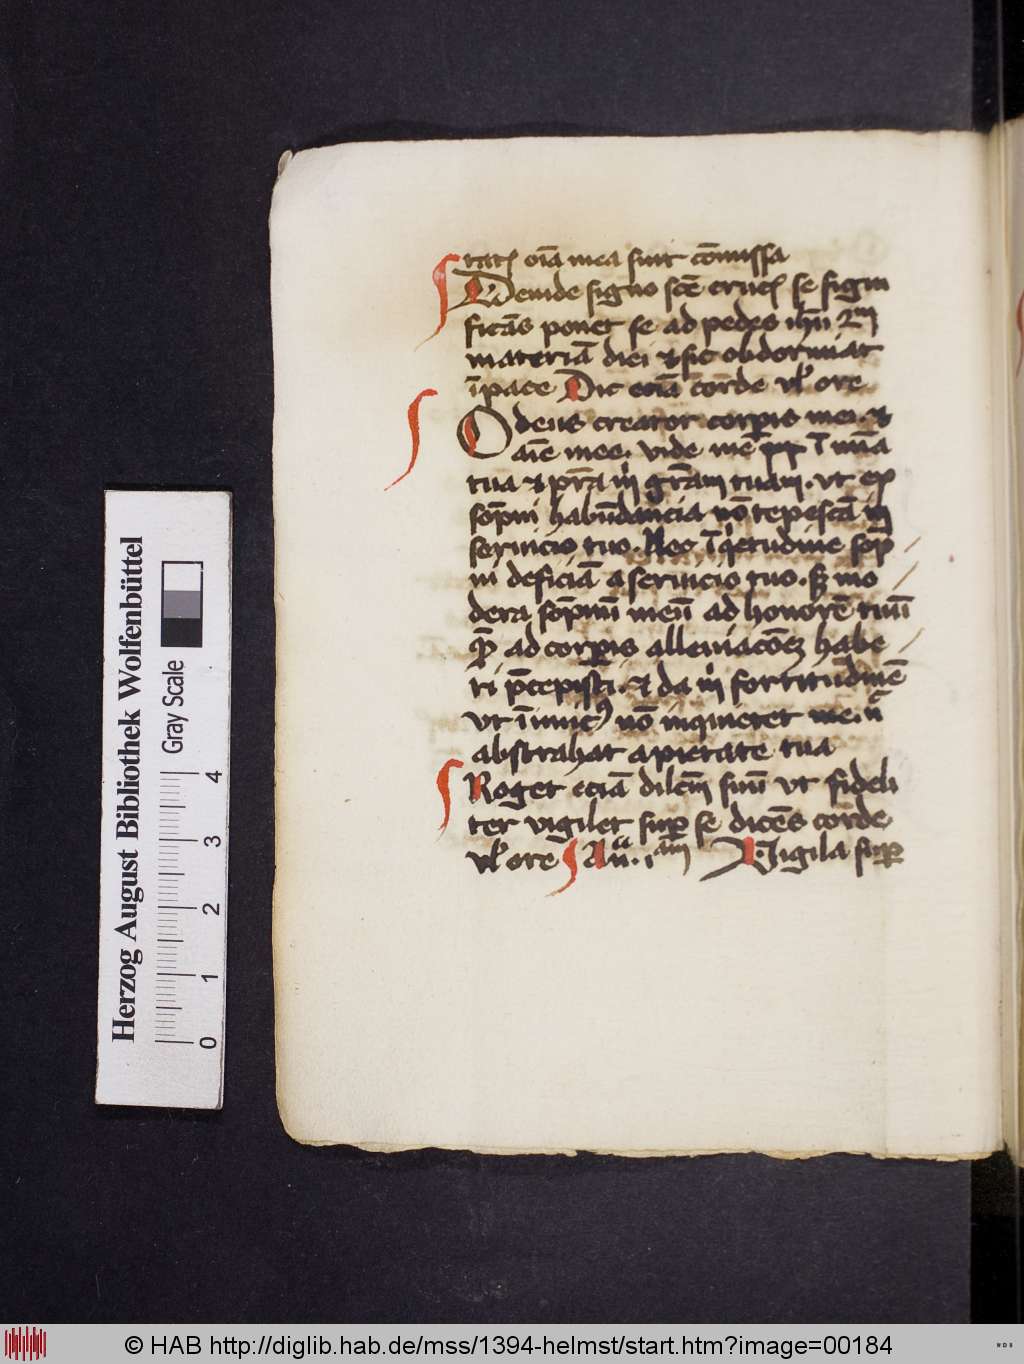 tatꝭ oīa mea sūt cōmissa
Deinde signo scē crucꝭ se signi
ficās ponet se ad pedes ihū
materiā diei et sic obdormiat
ī pace Dic eciā corde vl ore
O deus creator corpis mei et
aīe mee. vide me ī
tua et gr̄am tuam. vt ex
sōpni habūdancia nō tepescā in
seruicio tuo. Nec ī sōp
ni deficiā a seruicio tuo. sꝫ mo
dera sōpnū meū ad honorē tuū
ad corpis alleuiacōeꝫ habe
ri p̄cepisti. et da m fortitudinē
vt īimicꝰ nō inquietet me. n̄
abstrahat a pietate tua
Roget eciā suū vt fideli
ter vigilet suꝑ se dicēs corde
vl ore Vigila suꝑ
Herzog August Bibliothek Wolfenbüttel
Gray Scale
0 1 2 3 4
© HAB http://diglib.hab.de/mss/1394-helmst/start.htm?image=00184